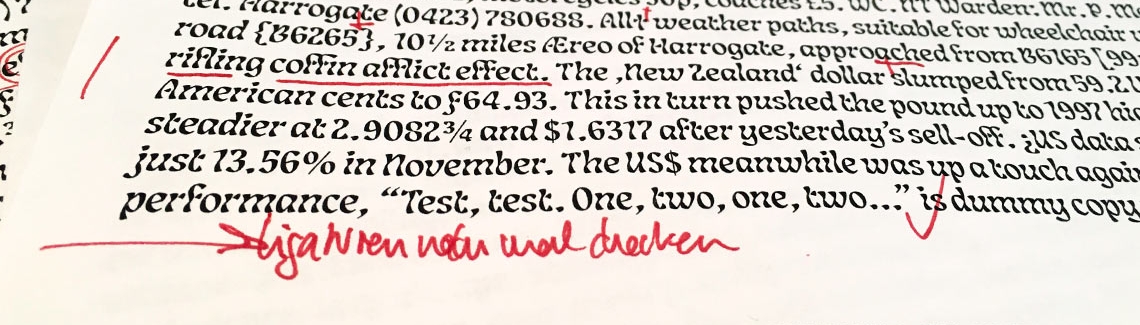 Harrogate (0423) 780688. All-weather paths, suitable for wheelchair
road {B6265}, 10½ miles Æreo of Harrogate, approached from B6165 [99
rifling coffin afflict effect. The ‚New Zealand‘ dollar slumped from 59.2
American cents to £64.93. This in turn pushed the pound up to 1997
steadier at 2.9082¾ and $1.6317 after yesterday’s sell-off. ¿US data
just 13.56% in November. The US$ meanwhile was up a touch again
performance, “Test, test. One, two, one, two...” is dummy copy
Ligaturen noch mal checken